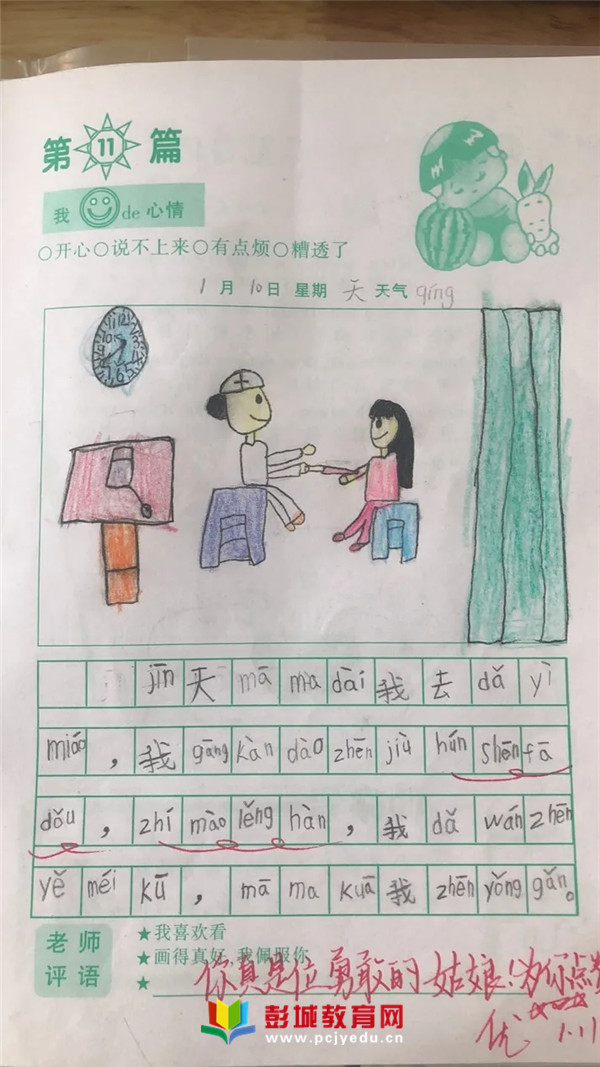 第 11 篇
我 de 心情
○开心○说不上来○有点烦○糟透了
1 月 10 日 星期 天 天气 qíng
jīn 天 mā ma dài 我 去 dǎ yì
miáo ， 我 gāng kàn dào zhēn jiù hún shēn fā
dǒu ， zhí mào lěng hàn ， 我 dǎ wán zhēn
yě méi kū ， mā ma kuā 我 zhēn yǒng gǎn。
老师
评语
★我喜欢看
★画得真好，我佩服你
★
你真是位勇敢的姑娘！为你点赞
优 1.11
彭城教育网
www.pcjyedu.cn